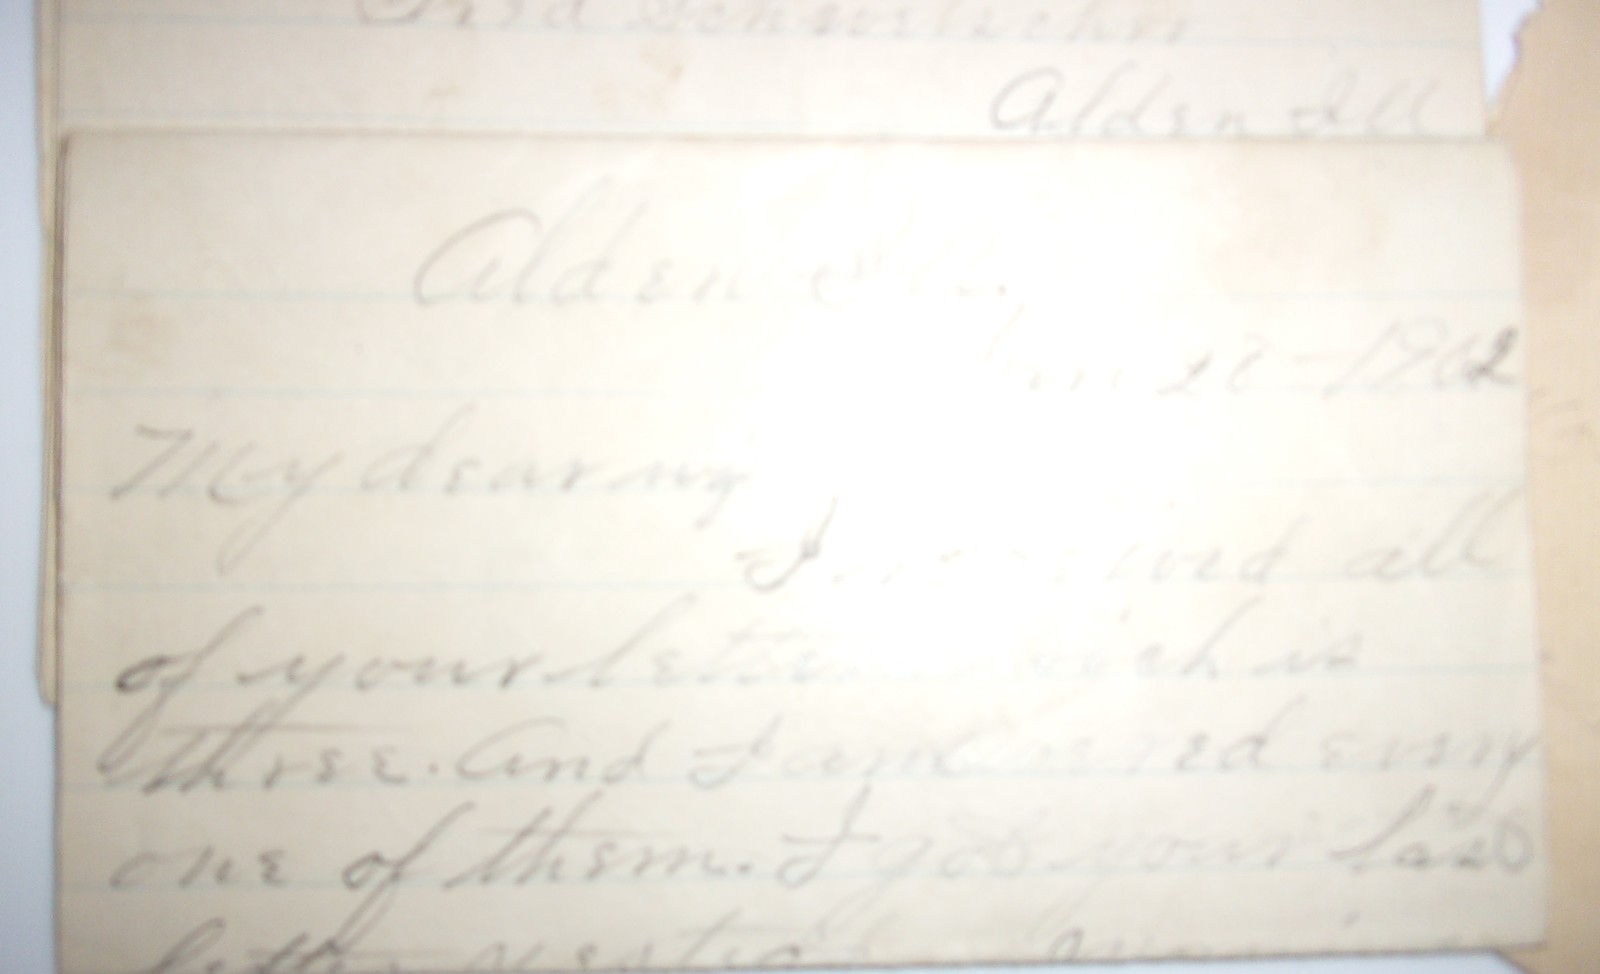 Fred
Alden Ill
Alden Ill.
28-1902
My dear
I received all
of your letters which is
three. And I answered every
one of them. I got your last
letter